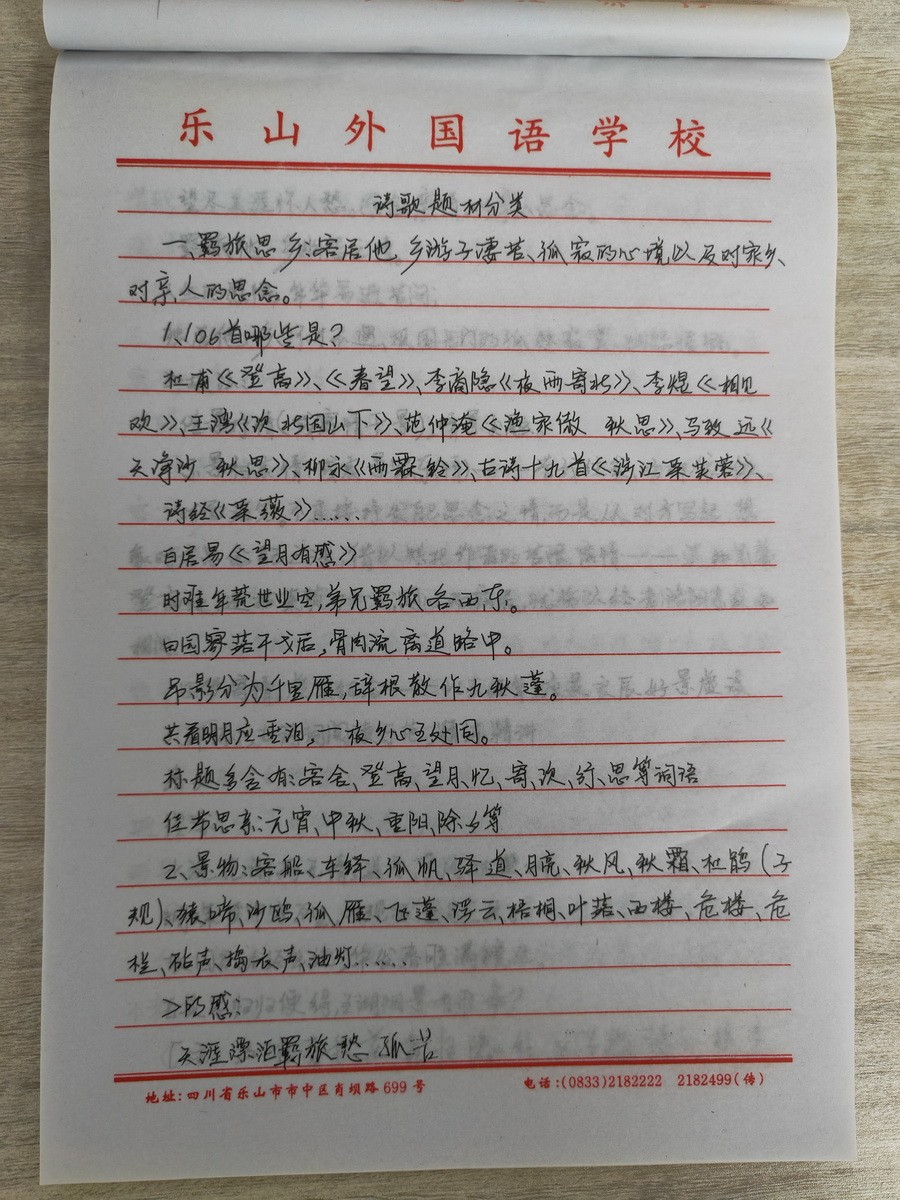 乐山外国语学校
诗歌题材分类
一、羁旅思乡:客居他乡游子凄苦、孤寂的心境,以及对家乡、
对亲人的思念。
1、106首哪些是?
杜甫《登高》、《春望》、李商隐《夜雨寄北》、李煜《相见
欢》、王湾《次北固山下》、范仲淹《渔家傲 秋思》、马致远《
天净沙 秋思》、柳永《雨霖铃》、古诗十九首《涉江采芙蓉》、
诗经《采薇》......
白居易《望月有感》
时难年荒世业空,弟兄羁旅各西东。
田园寥落干戈后,骨肉流离道路中。
吊影分为千里雁,辞根散作九秋蓬。
共看明月应垂泪,一夜乡心五处同。
标题多含有:客舍、登高、望月、忆、寄、次、行、思等词语
佳节思亲:元宵、中秋、重阳、除夕等
2、景物:客船、车铎、孤帆、驿道、月亮、秋风、秋霜、杜鹃(子
规)、猿啼、沙鸥、孤雁、飞蓬、浮云、梧桐、叶落、西楼、危楼、危
栏、砧声、捣衣声、油灯......
情感:
天涯漂泊羁旅愁 孤苦
地址:四川省乐山市市中区肖坝路699号 电话:(0833)2182222 2182499(传)